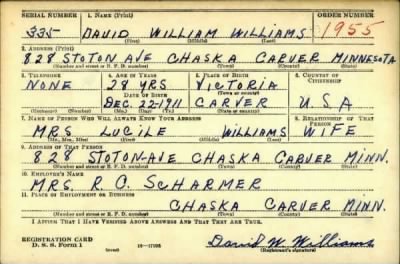 SERIAL NUMBER 1. NAME (Print) ORDER NUMBER
335 DAVID WILLIAM WILLIAMS 1955
(First) (Middle) (Last)
2. ADDRESS (Print)
828 STOTON AVE CHASKA CARVER MINNESOTA
(Number and street or R. F. D. number) (Town) (County) (State)
3. TELEPHONE 4. AGE IN YEARS 5. PLACE OF BIRTH 6. COUNTRY OF CITIZENSHIP
NONE 28 YRS VICTORIA
DATE OF BIRTH
DEC-22-1911 CARVER U.S.A
(Exchange) (Number) (Mo.) (Day) (Yr.) (State or country)
7. NAME OF PERSON WHO WILL ALWAYS KNOW YOUR ADDRESS 8. RELATIONSHIP OF THAT PERSON
MRS. LUCILE WILLIAMS WIFE
(Mr., Mrs., Miss) (First) (Middle) (Last)
9. ADDRESS OF THAT PERSON
828 STOTON-AVE CHASKA CARVER MINN.
(Number and street or R. F. D. number) (Town) (County) (State)
10. EMPLOYER'S NAME
MRS. R. O. SCHARMER
11. PLACE OF EMPLOYMENT OR BUSINESS
CHASKA CARVER MINN.
(Number and street or R. F. D. number) (Town) (County) (State)
I AFFIRM THAT I HAVE VERIFIED ABOVE ANSWERS AND THAT THEY ARE TRUE.
REGISTRATION CARD
D. S. S. Form 1 (over) 16-17105 David W. Williams
(Registrant's signature)